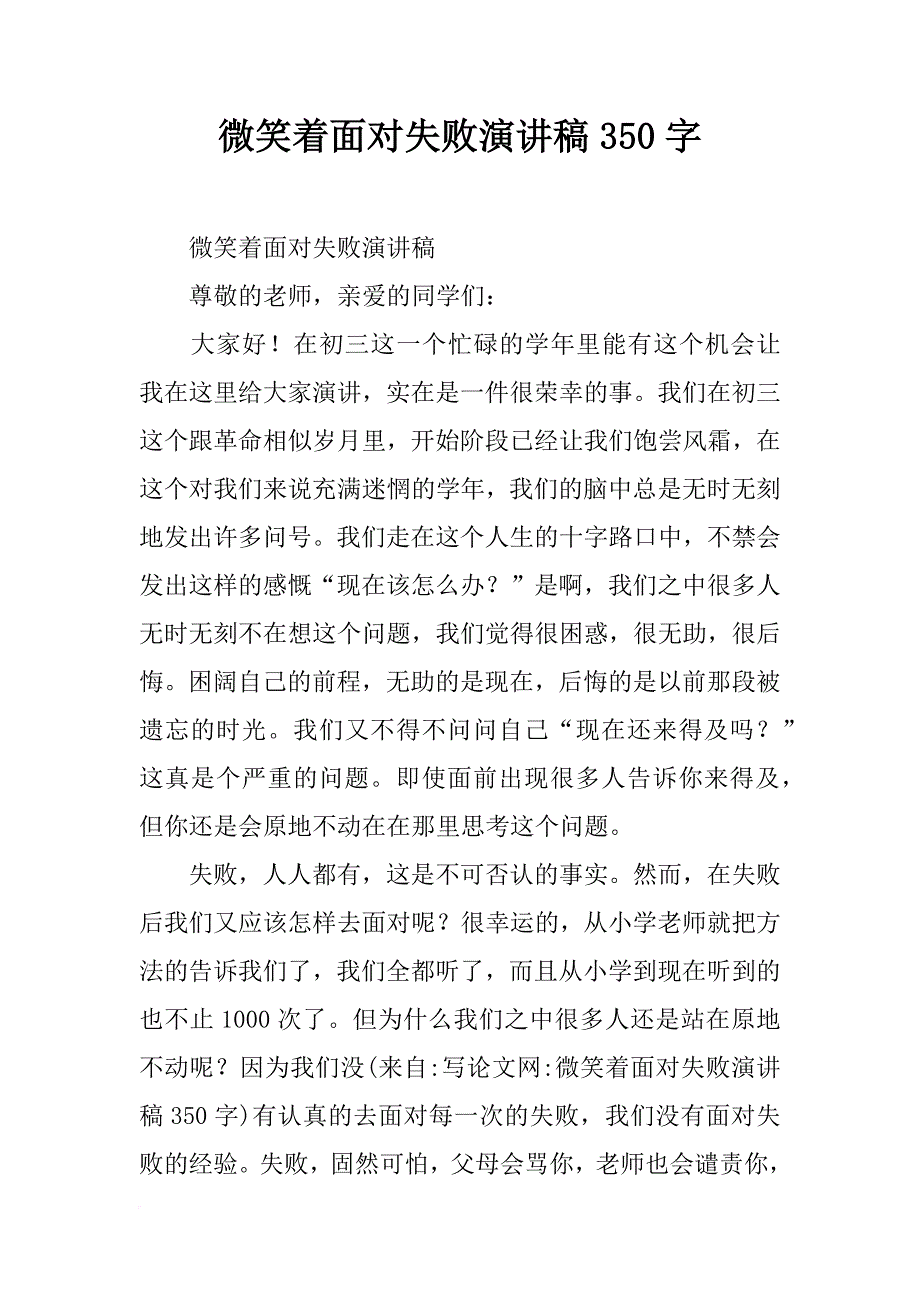 微笑着面对失败演讲稿350字
微笑着面对失败演讲稿
尊敬的老师，亲爱的同学们：
大家好！在初三这一个忙碌的学年里能有这个机会让
我在这里给大家演讲，实在是一件很荣幸的事。我们在初三
这个跟革命相似岁月里，开始阶段已经让我们饱尝风霜，在
这个对我们来说充满迷惘的学年，我们的脑中总是无时无刻
地发出许多问号。我们走在这个人生的十字路口中，不禁会
发出这样的感慨“现在该怎么办？”是啊，我们之中很多人
无时无刻不在想这个问题，我们觉得很困惑，很无助，很后
悔。困阔自己的前程，无助的是现在，后悔的是以前那段被
遗忘的时光。我们又不得不问问自己“现在还来得及吗？”
这真是个严重的问题。即使面前出现很多人告诉你来得及，
但你还是会原地不动在在那里思考这个问题。
失败，人人都有，这是不可否认的事实。然而，在失败
后我们又应该怎样去面对呢？很幸运的，从小学老师就把方
法的告诉我们了，我们全都听了，而且从小学到现在听到的
也不止1000次了。但为什么我们之中很多人还是站在原地
不动呢？因为我们没(来自:写论文网:微笑着面对失败演讲
稿350字)有认真的去面对每一次的失败，我们没有面对失
败的经验。失败，固然可怕，父母会骂你，老师也会谴责你，